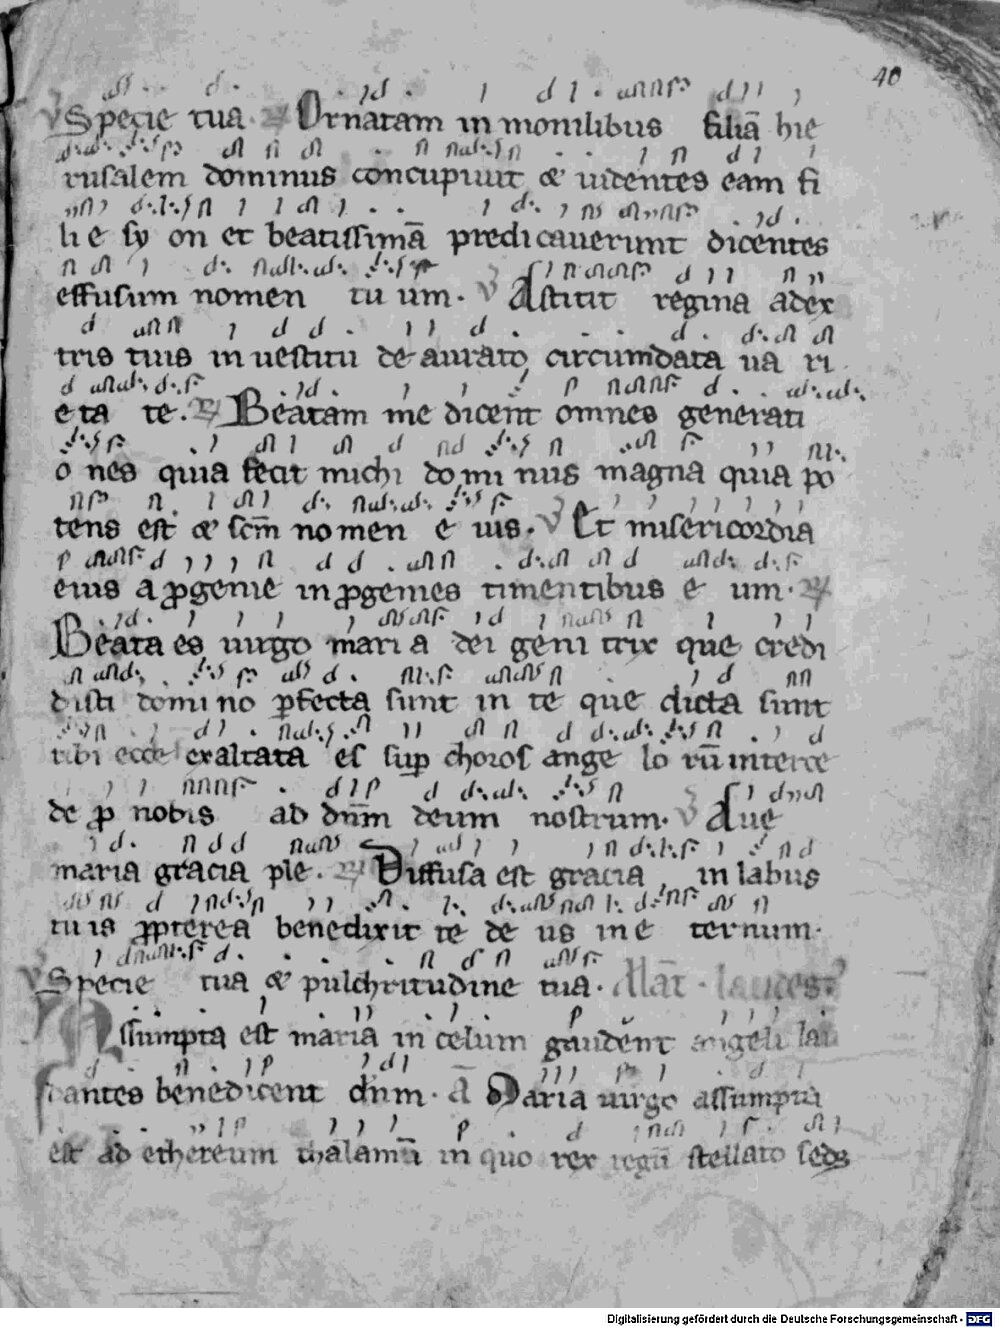 40
℣ Specie tua ℟ Ornatam in monilibus filiā hie
rusalem dominus concupiuit & uidentes eam fi
li e sy on et beatissimā predicauerunt dicentes
effusum nomen tu um. ℣ Astitit regina adex
tris tuis in uestitu de aurato circumdata ua ri
e ta te. ℟ Beatam me dicent omnes generati
o nes quia fecit michi do mi nus magna quia po
tens est & scm̄ no men e ius. ℣ Et misericordia
eius a ꝓgenie in ꝓgenies timentibus e um. ℟
Beata es uirgo mari a dei geni trix que credi
disti domi no ꝑfecta sunt in te que dicta sunt
tibi ecce exaltata es suꝑ choros ange lo rū interce
de ꝓ nobis ad dn̄m deum nostrum. ℣ Aue
maria gracia ple. ℟ Diffusa est gracia in labiis
tuis ꝓpterea benedixit te de us in e ternum.
℣ Specie tua & pulchritudine tua. Mat̄. laudes.
Assumpta est maria in celum gaudent angeli lau
dantes benedicent dn̄m. a̅ Maria uirgo assumpta
est ad ethereum thalamū in quo rex regū stellato sed&
Digitalisierung gefördert durch die Deutsche Forschungsgemeinschaft - DFG